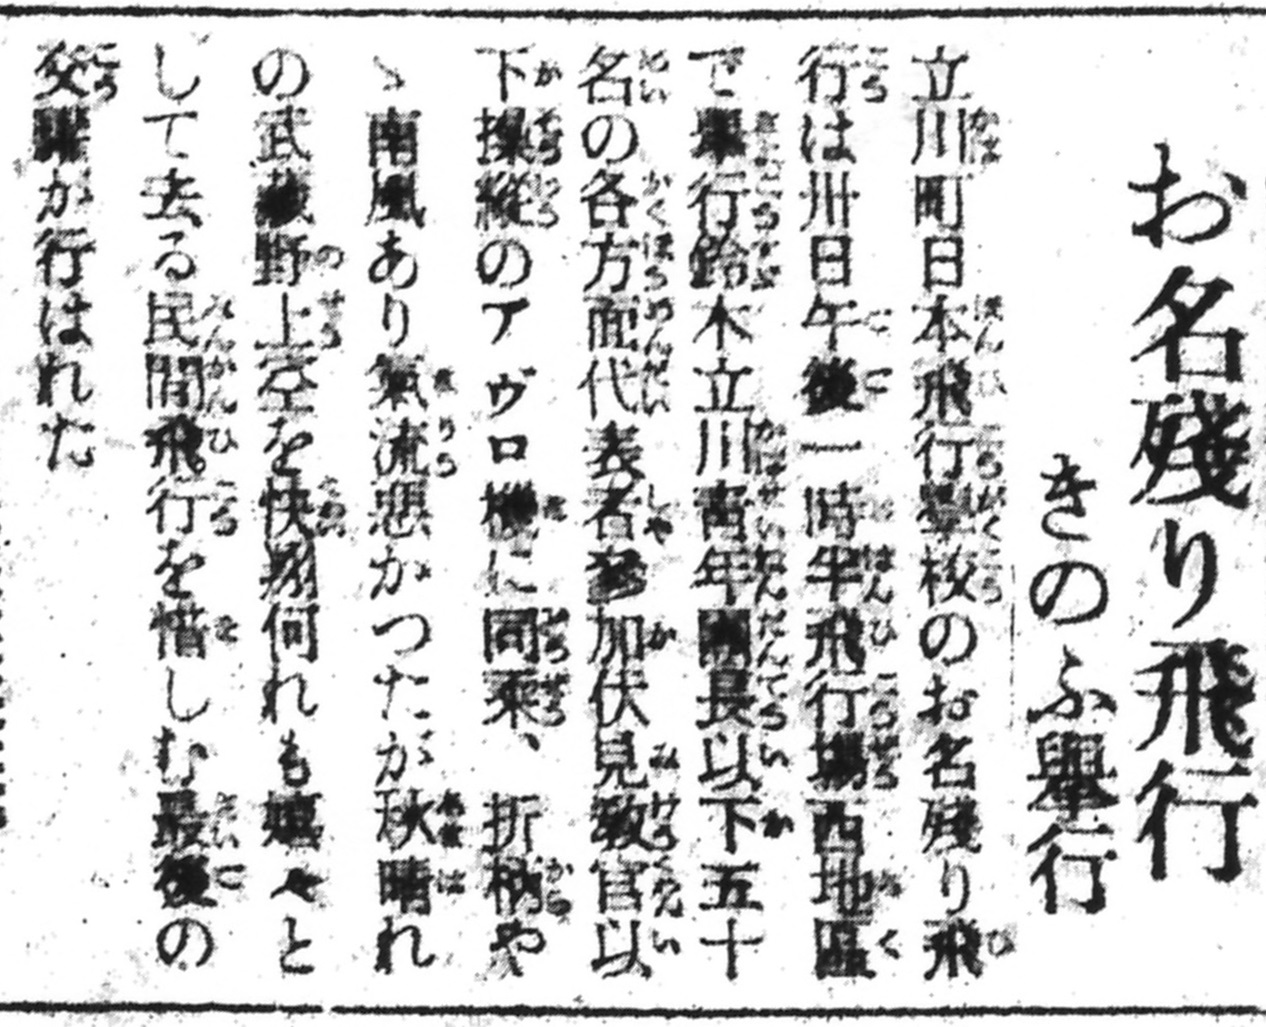 お名殘り飛行
きのふ擧行
立川町日本飛行學校のお名殘り飛
行は卅日午後一時半飛行場西地區
で擧行鈴木立川靑年團長以下五十
名の各方面代表者參加伏見敎官以
下操縱のアヴロ機に同乘、折柄や
ゝ南風あり氣流惡かつたが秋晴れ
の武藏野上空を快翔何れも嬉々と
して去る民間飛行を惜しむ最後の
交驩が行はれた